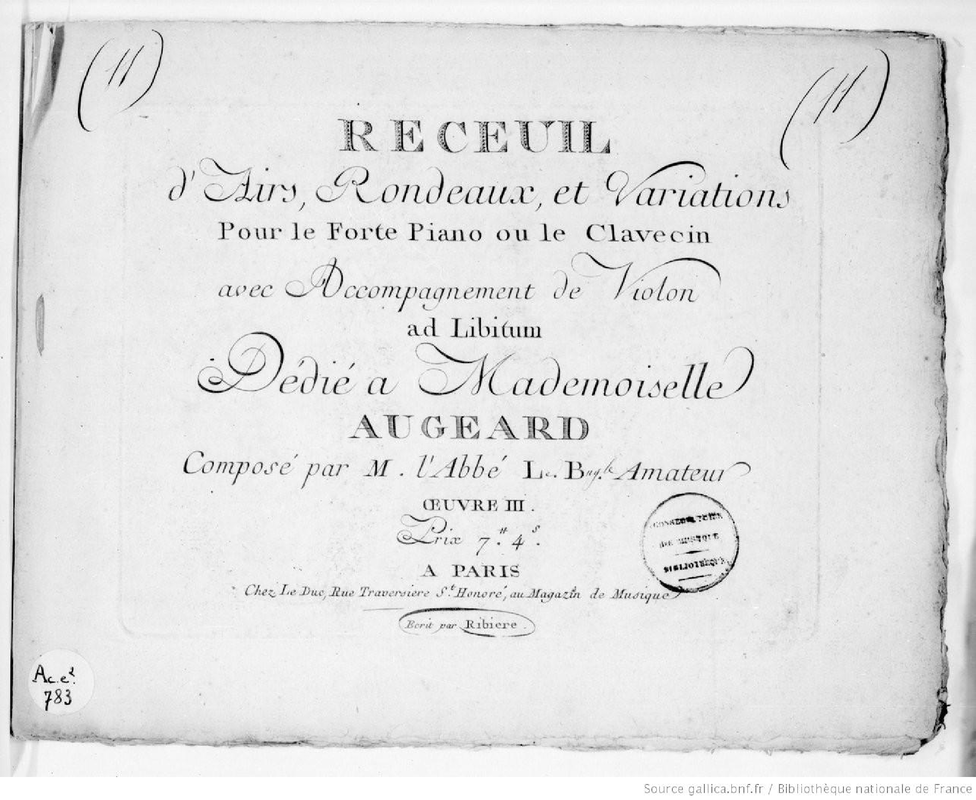 (11)
(11)
RECEUIL
d'Airs, Rondeaux, et Variations
Pour le Forte Piano ou le Clavecin
avec Accompagnement de Violon
ad Libitum
Dédié a Mademoiselle
AUGEARD
Composé par M. l'Abbé Le. Bugle Amateur
ŒUVRE III.
Prix 7.# 4s.
A PARIS
Chez Le Duc, Rue Traversiere St. Honoré, au Magazin de Musique
Ecrit par Ribiere.
CONSERVATOIRE
DE MUSIQUE
BIBLIOTHÈQUE
Ac.e2.
783
Source gallica.bnf.fr / Bibliothèque nationale de France